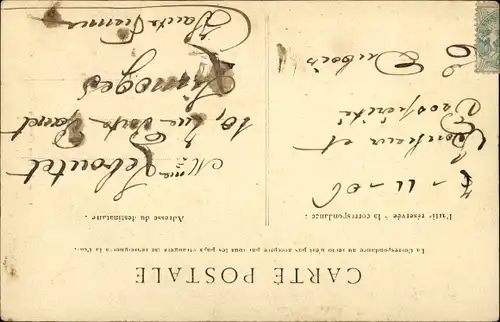 CARTE POSTALE
La Correspondance au recto n'est pas acceptée par tous les pays étrangers (se renseigner à la Poste)
Partie réservée à la correspondance.
11-06
Bonheur et
Prospérité
E Dubois
Adresse du destinataire.
Mme Reboutet
10, rue
Limoges
Haute Vienne